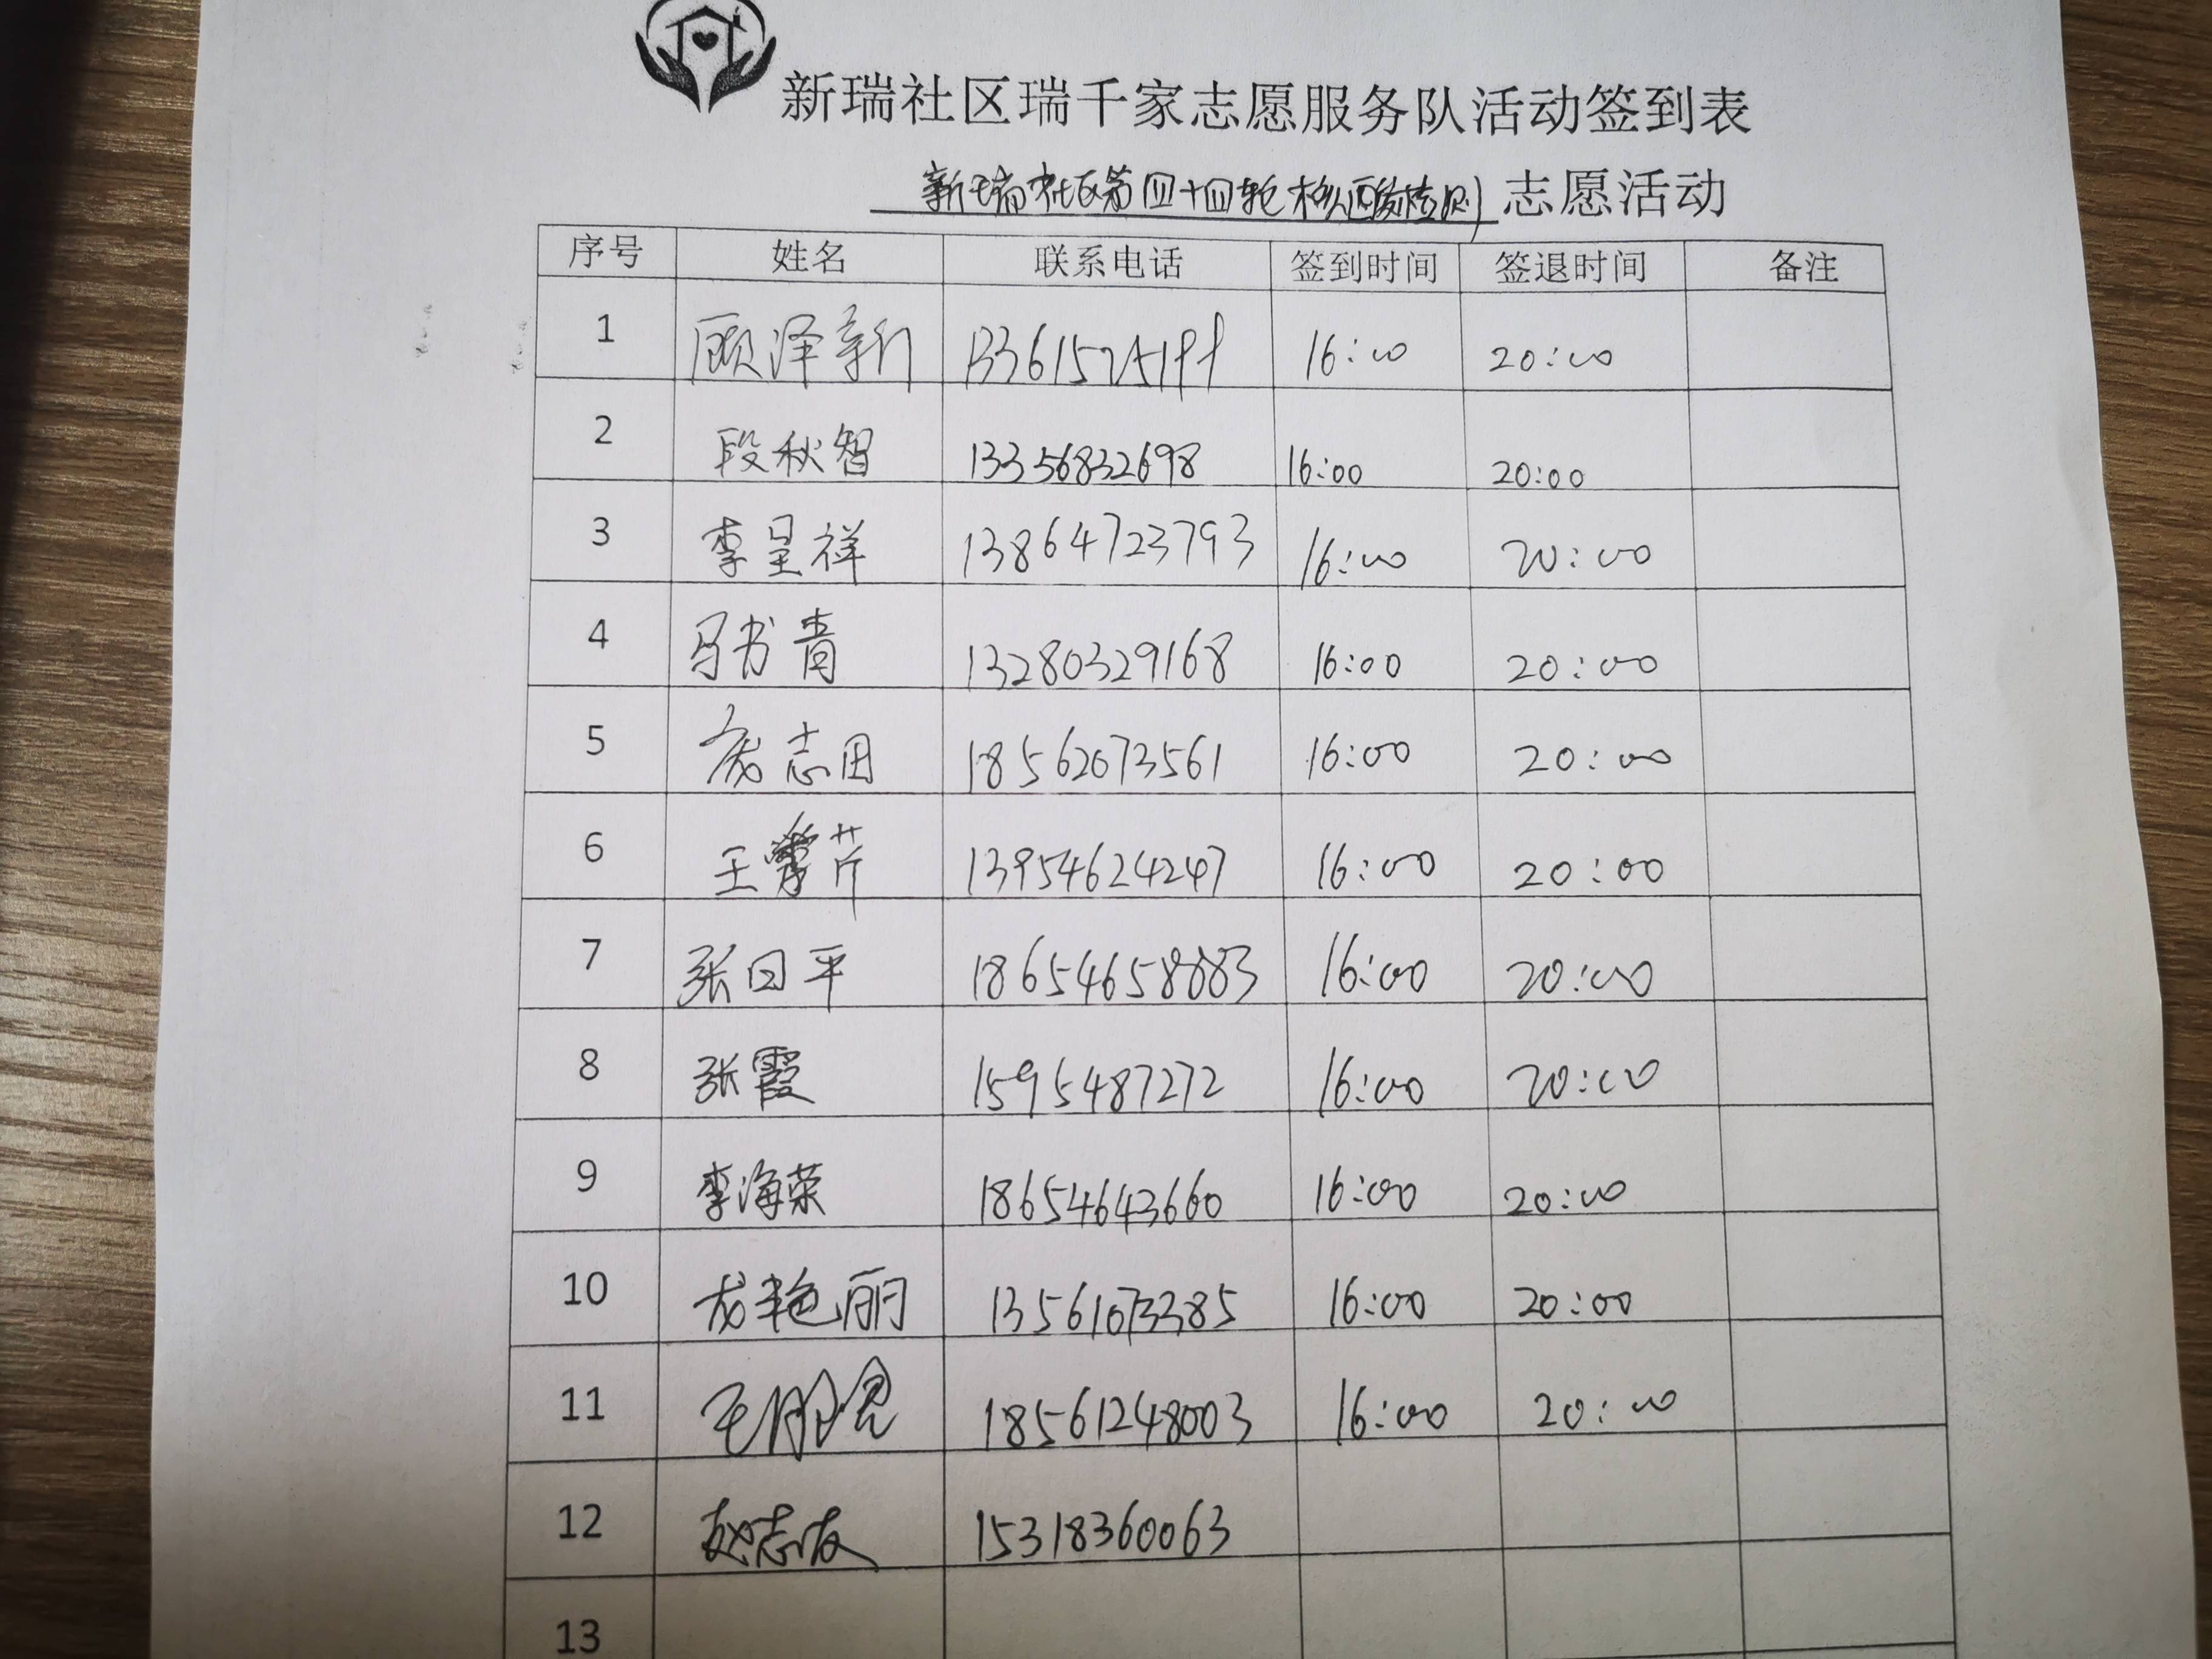 新瑞社区瑞千家志愿服务队活动签到表
新瑞社区第四十四轮核酸检测 志愿活动
序号 姓名 联系电话 签到时间 签退时间 备注
1 顾泽新 16:00 20:00
2 段秋智 13356832698 16:00 20:00
3 李呈祥 13864723793 16:00 20:00
4 马书青 13280329168 16:00 20:00
5 志田 18562073561 16:00 20:00
6 王 芹 13954624247 16:00 20:00
7 张日平 18654658883 16:00 20:00
8 张霞 1595487272 16:00 20:00
9 李海荣 18654643660 16:00 20:00
10 龙艳丽 13561073385 16:00 20:00
11 18561248003 16:00 20:00
12 赵志友 15318360063
13